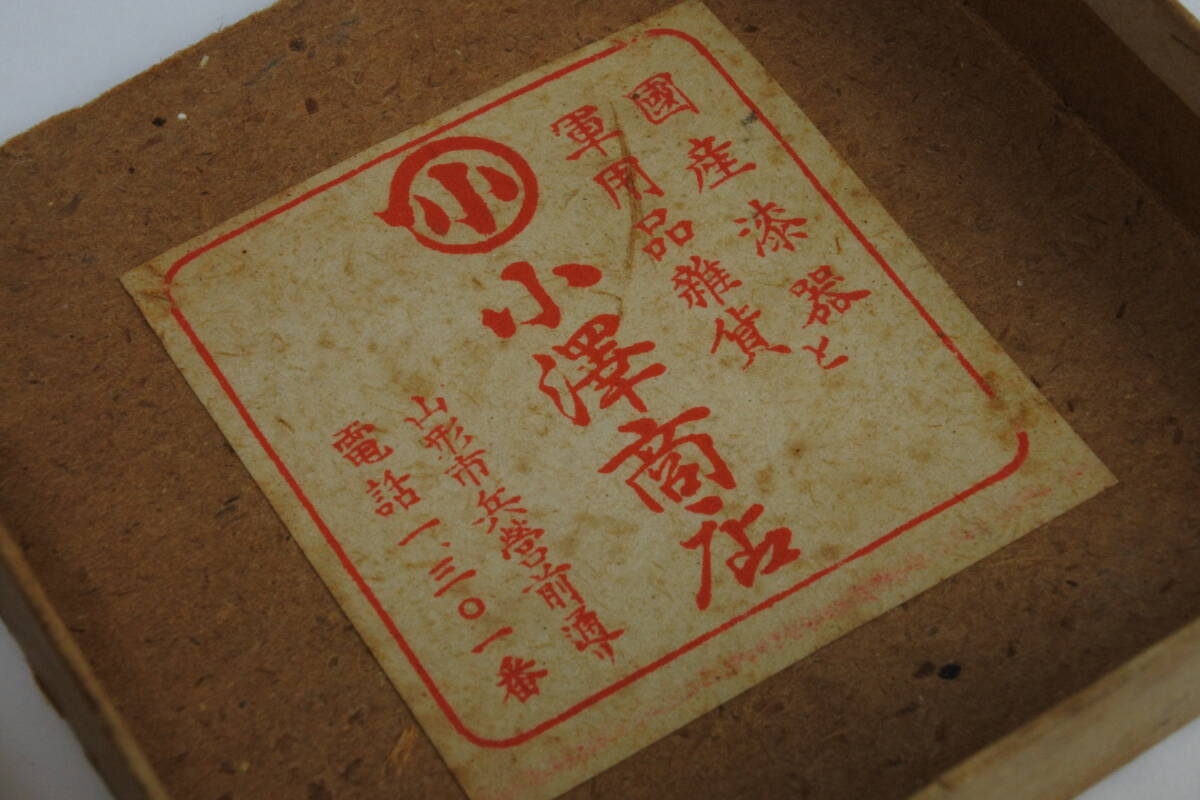 國産漆器と
軍用品雜貨
小
小澤商店
山形市兵營前通り
電話一、三〇一番